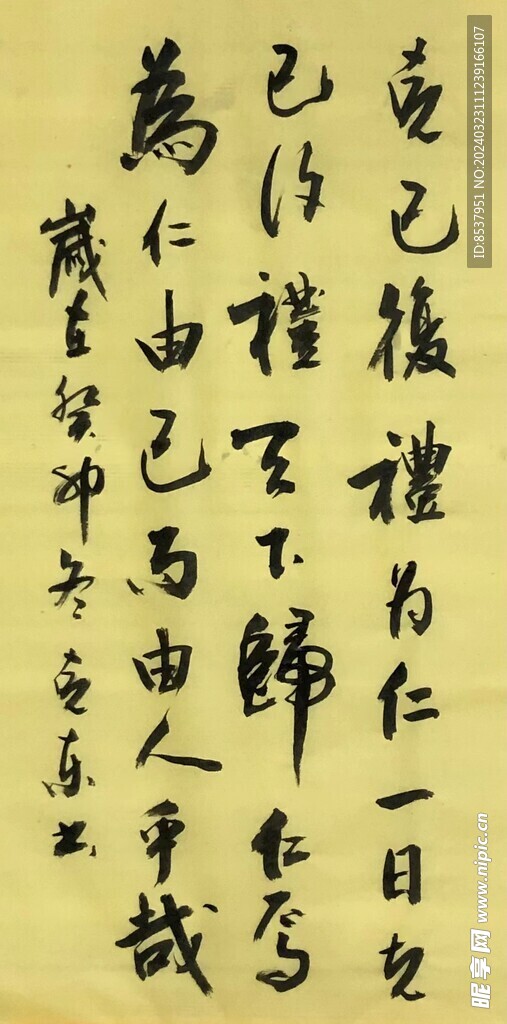 克己復禮为仁一日克
己復禮天下歸仁焉
為仁由己而由人乎哉
歲在癸卯冬克東书
ID:8537951 NO:20240323111239166107
昵享网 www.nipic.cn